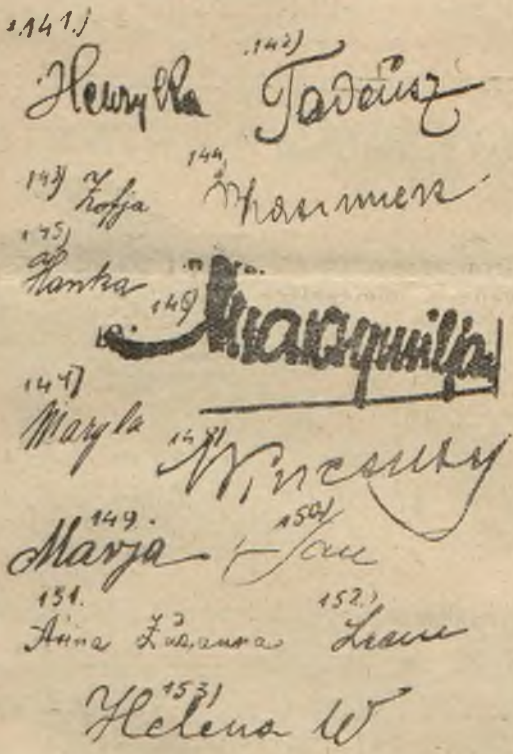 141.)
Henryka
142)
Tadeusz
143)
Zofja
144.
Kazimierz
145)
Hanka
146)
Maksymiljan
147)
Maryla
148)
Wincenty
149.
Marja
150)
Jan
151.
Anna Zuzanna
152.)
153)
Helena W